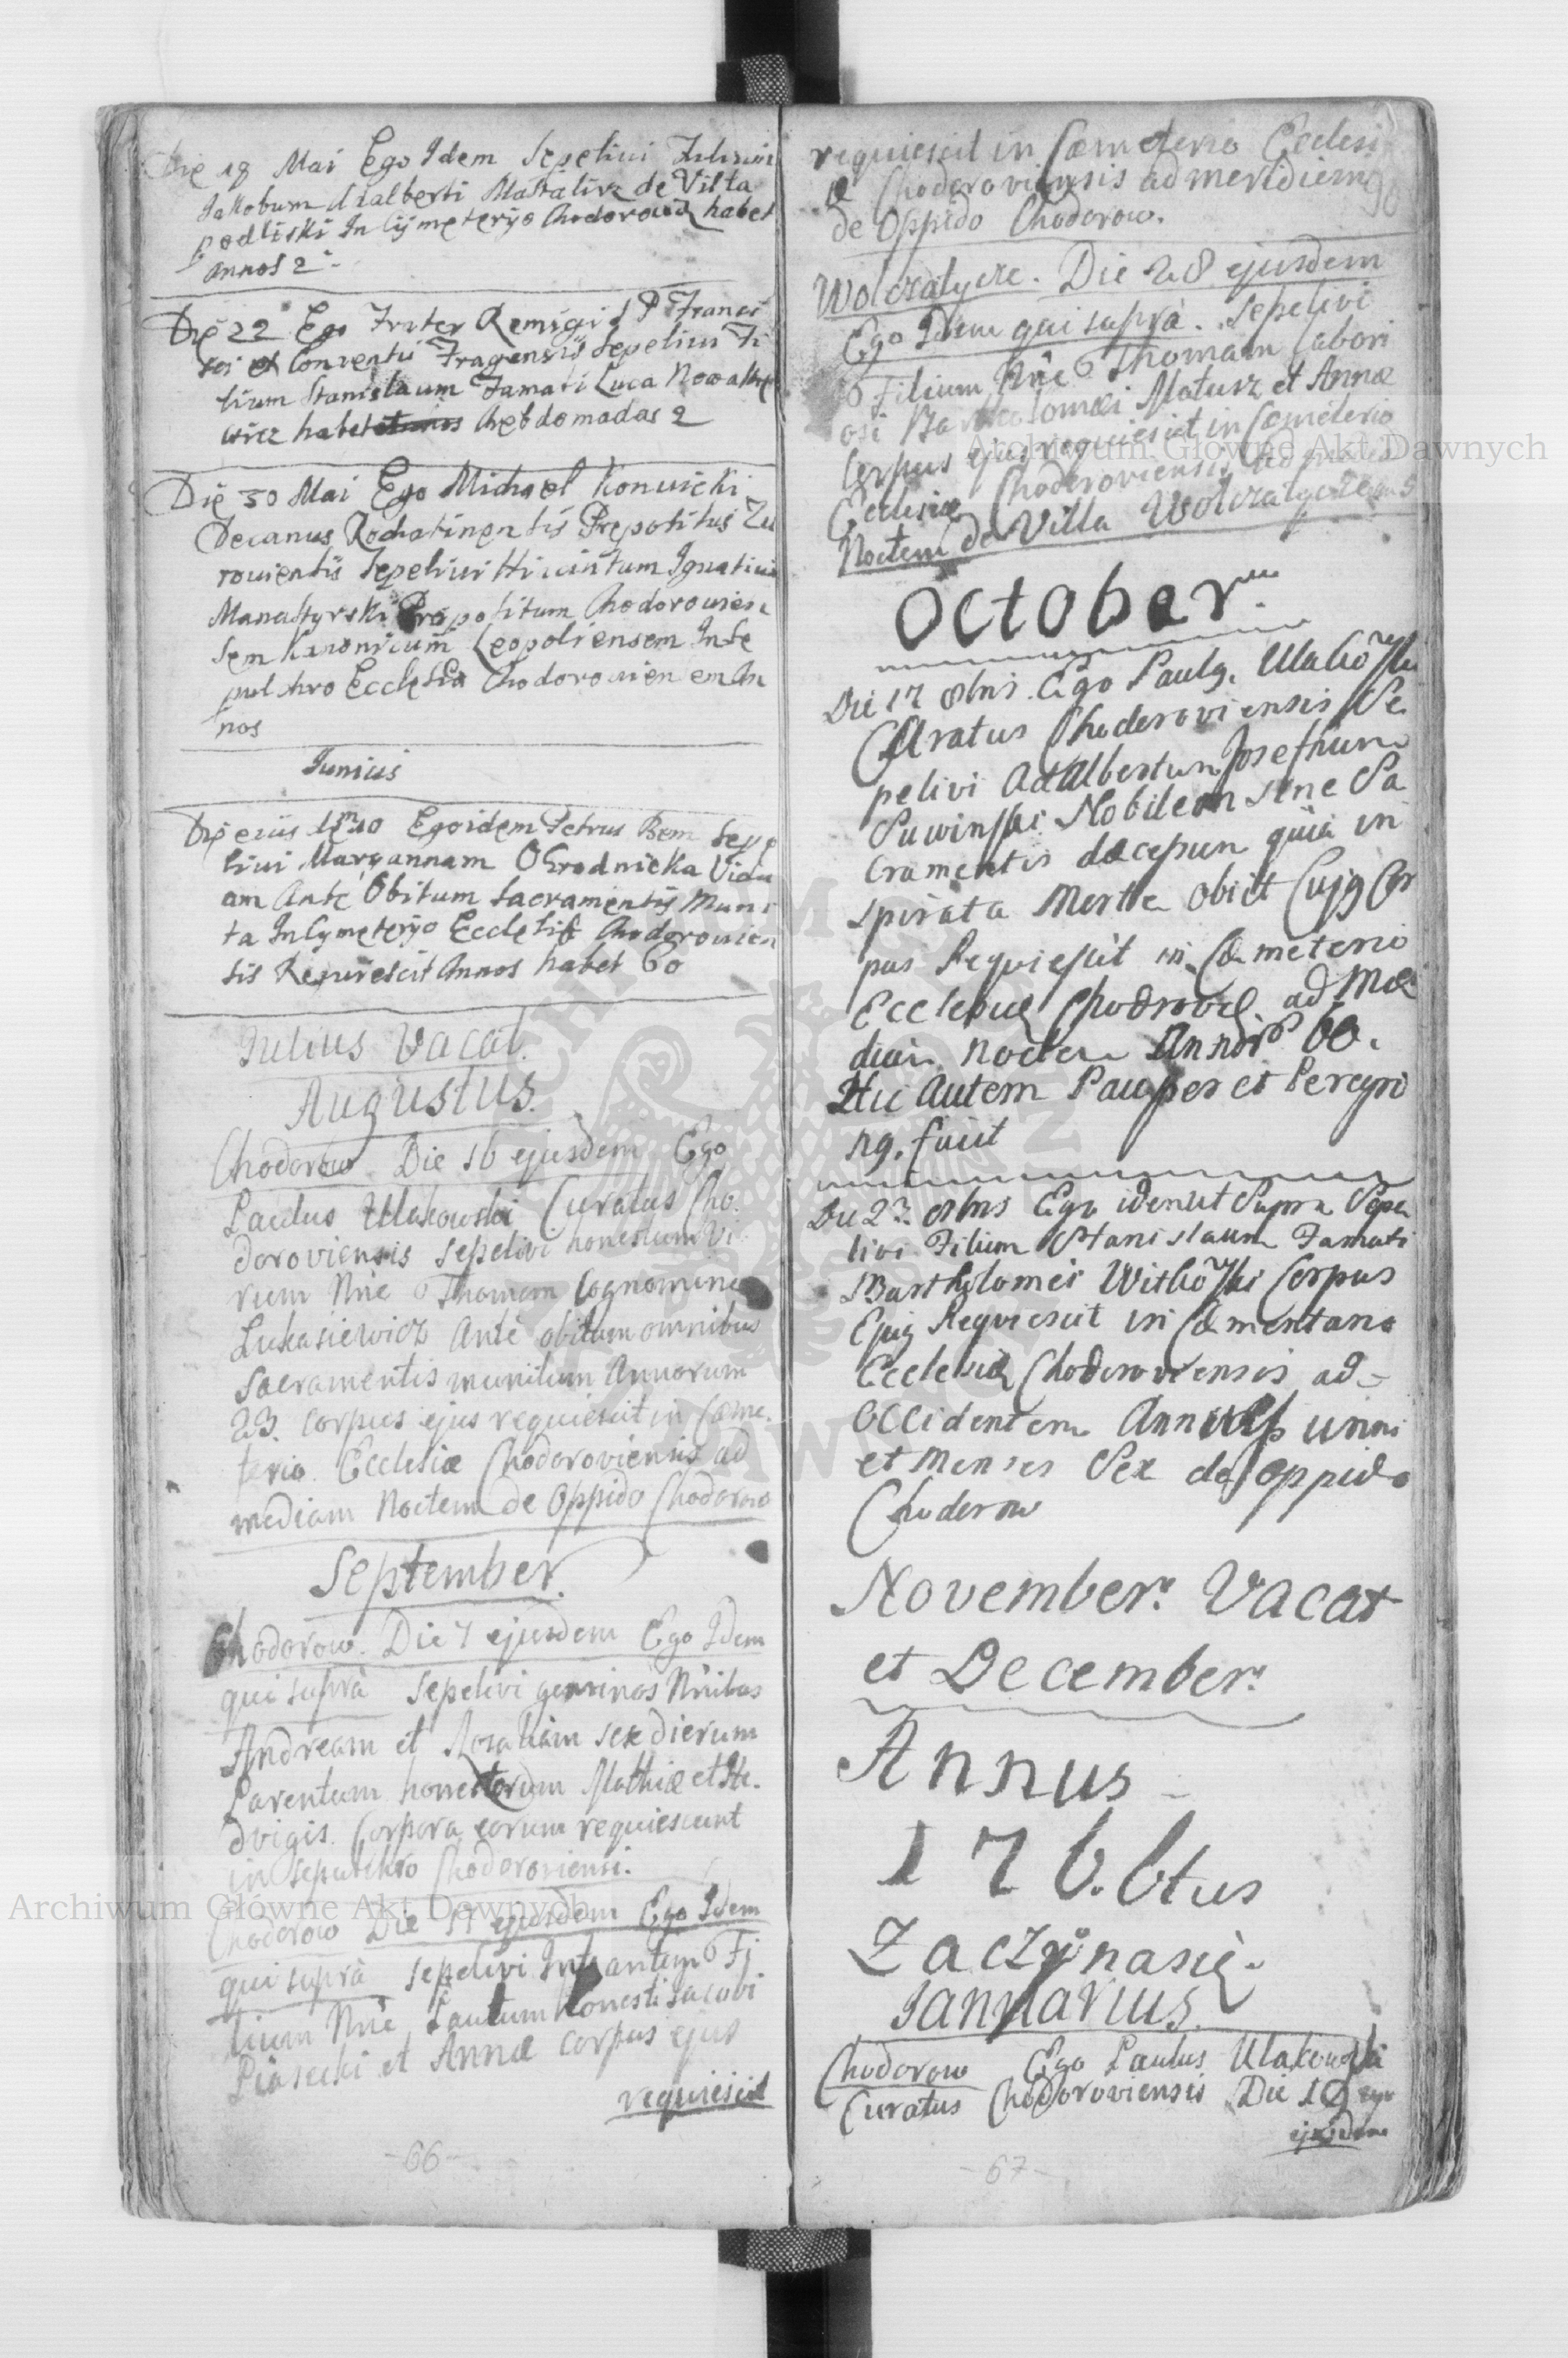 Die 18 Mai Ego Idem Sepelivi Filium
Jakobum Adalberti Mastalirz de Villa
podliski In Cijmeteryo Chodorowiæ habet
annos 2
Die 22 Ego Frater Remigi P Franci
sci et Conventu Fragensis Sepelivi Fi
lium Stanislaum Famati Luca Nowakie
wicz habet Hebdomadas 2
Die 30 Mai Ego Michael Konwicki
Decanus Rochatinensis Prepositus Zu
rowiensis Sepelivi Hiacintum Ignatium
Manastyrski Prepositum Chodorowien
sem Kanonicum Leopoliensem In Se
pulchro Ecclesia Chodorowien em An
nos
Junius
Die eius 10 Ego idem Petrus Bem Sepe
livi Maryannam Ogrodnicka Vidu
am Ante Obitum Sacramentis Muni
ta In Cymeteryo Ecclesiæ Chodorowien
sis Requiescit Annos habet 60
Julius Vacat.
Augustus.
Chodorow. Die 16 ejusdem Ego
Paulus Ulakowski Curatus Cho.
doroviensis sepelivi honestum Vi
rum Nñe Thomam Cognomine
Lukasiewicz Ante obitum omnibus
Sacramentis munitum Annorum
23. corpus ejus requiescit in Cœme.
terio Ecclesiæ Chodoroviensis ad
mediam Noctem de Oppido Chodorow
September.
Chodorow. Die 7 ejusdem Ego Idem
qui suprà sepelivi geminos Nñibus
Andream et Rosaliam sex dierum
Parentum honestorum Mathiæ et He.
dvigis. Corpora eorum requiescunt
in sepulchro Chodoroviensi.
Chodorow Die 17 ejusdem Ego Idem
qui suprà sepelivi Infantem Fi
lium Nñe Paulum honesti Jacobi
Piasecki et Annæ corpus ejus
requiescit
requiescit in Cœmeterio Ecclesi
æ Chodoroviensis ad meridiem
de Oppido Chodorow.
98
Wolczatycze. Die 28 ejusdem
Ego Idem qui suprà. sepelivi
Filium Nñe Thomam Labori
osi Bartholomæi Maturz et Annæ
Corpus ejus requiescit in Cœmeterio
Ecclesiæ Chodoroviensis ad
Noctem de Villa Wolczatycze
October
Die 17 8bris Ego Paulg. Ulakowski
Curatus Chodoroviensis Se
pelivi Adalbertum Josephum
Suwinski Nobilem sine Sa
cramentis quia in
Morte obiit Cujg Cor
pus Requiescit in Cœmeterio
Ecclesiæ ad Me
diam Noctem Annor 60.
Hic Autem Pauper et Peregri
ng. fuit
Die 23 8bris Ego idem ut Supra Sepe
livi Filium Stanislaum Famati
Bartholomei Witkowski Corpus
Ejug Requiescit in
Ecclesiæ Chodoroviensis ad
Occidentem unni
et Menses Sex de Oppido
Chodorow
November. Vacat
et December.
Annus
176.6tus
Zaczÿnasię.
Januarius.
Chodorow Ego Paulus Ulakowski
Curatus Chodoroviensis Die
ejusdem
- 66 -
- 67 -
Archiwum Główne Akt Dawnych
Archiwum Główne Akt Dawnych